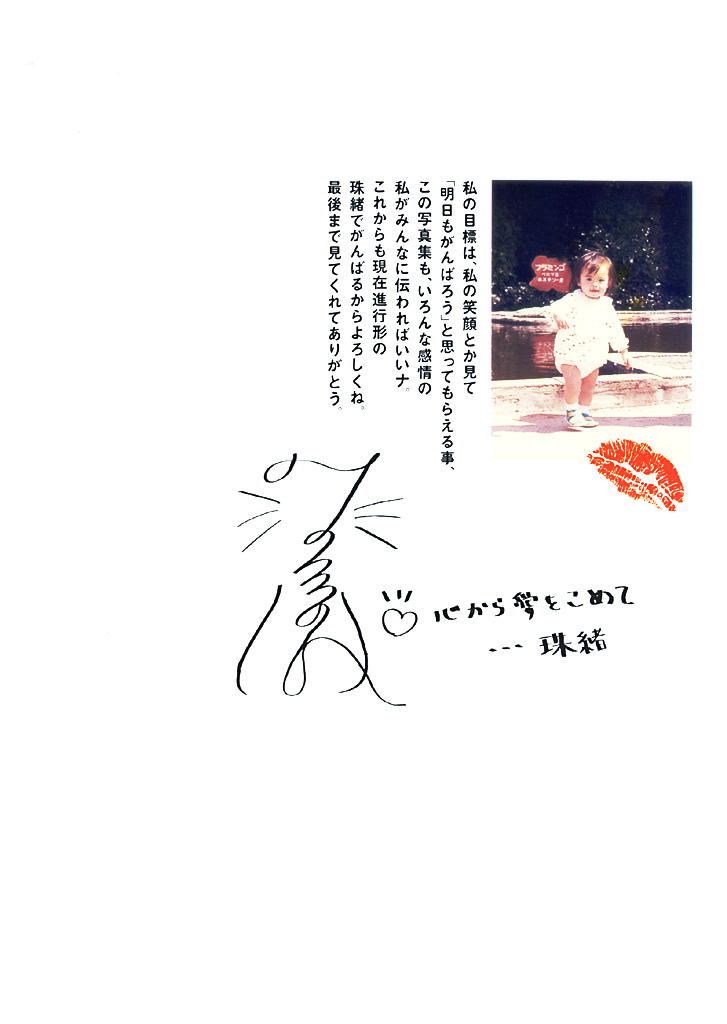 私の目標は、私の笑顔とか見て
「明日もがんばろう」と思ってもらえる事、
この写真集も、いろんな感情の
私がみんなに伝わればいいナ。
これからも現在進行形の
珠緒でがんばるからよろしくね。
最後まで見てくれてありがとう。
フラミンゴ
心から愛をこめて
…珠緒